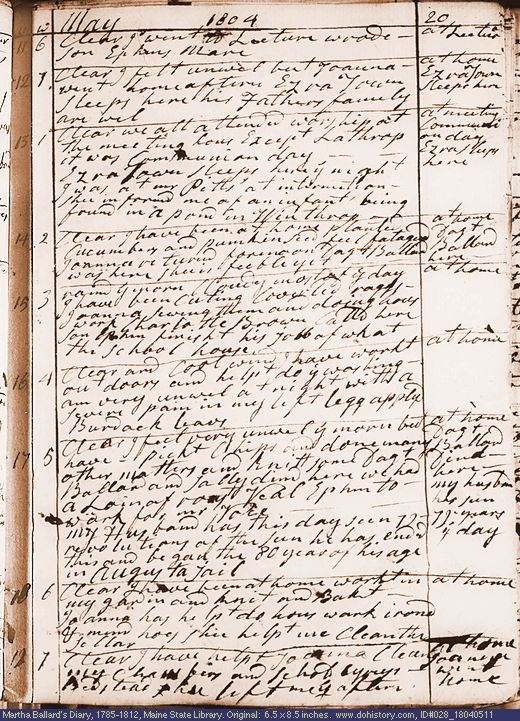 May 1804 20
11 6 Clear I went to Lecture at Lectur
Son Ephms
12 7 Clear I felt unwel but at home
went home after Ezra Town Ezra Town
sleeps here his Fathers family sleeps here
are wel
1 Clear we all attend worship at at meeting
the meeting hous Except Lathrop
it was Communion day day
Ezra Town sleeps here y night Ezra sleeps
I was at mr Petts at intermition here
Shee informd me of an infant being
found in a pond in Winthrop
14 2 Clear I have been at home planted at home
Cucumbers and pumkin seed feel fatagud Dagt
returned forenoon Dagt Ballard Ballard
was here shee is feeble here
3 y morn Cloudy most of y day at home
I have been Cuting Cooard rags
Joanna sewing them and doing hous
work Charlotte Brown Calld here
Son finisht his Jobb of what
the School house
16 4 Clear and Cool wind I have workt at home
out doors and helpt do y washing
am very unwel at night with a
severe pain in my left legg apply
Burdack leavs
17 5 Clear I feel very unwel y morn but at home
have pickt Chips and done many Dagt
other matters and Knit some Dagt Ballard
Ballard and Sally dind here we had dind
a Loin of roast Veal Ephm to- here
work for mr my husban
my Husband has this day seen 79 has seen
revolutions of the sun he has endd 79 years
this and began the 80 year of his age y day
in Augusta Jail
18 6 Clear I have been at home workt in at home
my gardin and Knit and Bakt
Joanna has helpt do hous work irond
& mend hoes Shee helpt me Clean the
Sellar
19 7 Clear I have helpt Joanna Clean at home
my Chambers and
Bedstead Shee left me after home
Martha Ballard's Diary, 1785-1812, Maine State Library. Original: 6.5 x 8.5 inches. www.dohistory.org, ID#028_18040511